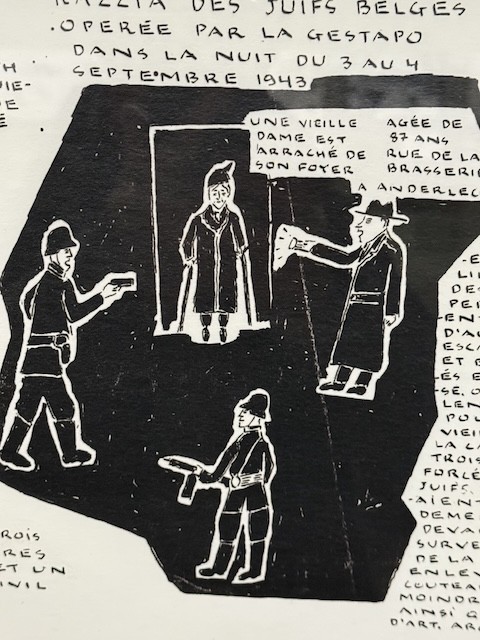 RAZZIA DES JUIFS BELGES
OPERÉE PAR LA GESTAPO
DANS LA NUIT DU 3 AU 4
SEPTEMBRE 1943
UNE VIEILLE
DAME EST
ARRACHÉ DE
SON FOYER
AGÉE DE
87 ANS
RUE DE LA
BRASSERIE
A ANDERLEC
DES
PER
D'A
ESCA
ET
SE.
LEN
POU
VIEI
LA
TROIS
FORCÉ
JUIFS.
AIENT
DEME
DEVA
SURVE
DE LA
ENLEV
COUTEA
MOINDR
AINSI
D'ART.
ROIS
RES
ET UN
IVIL